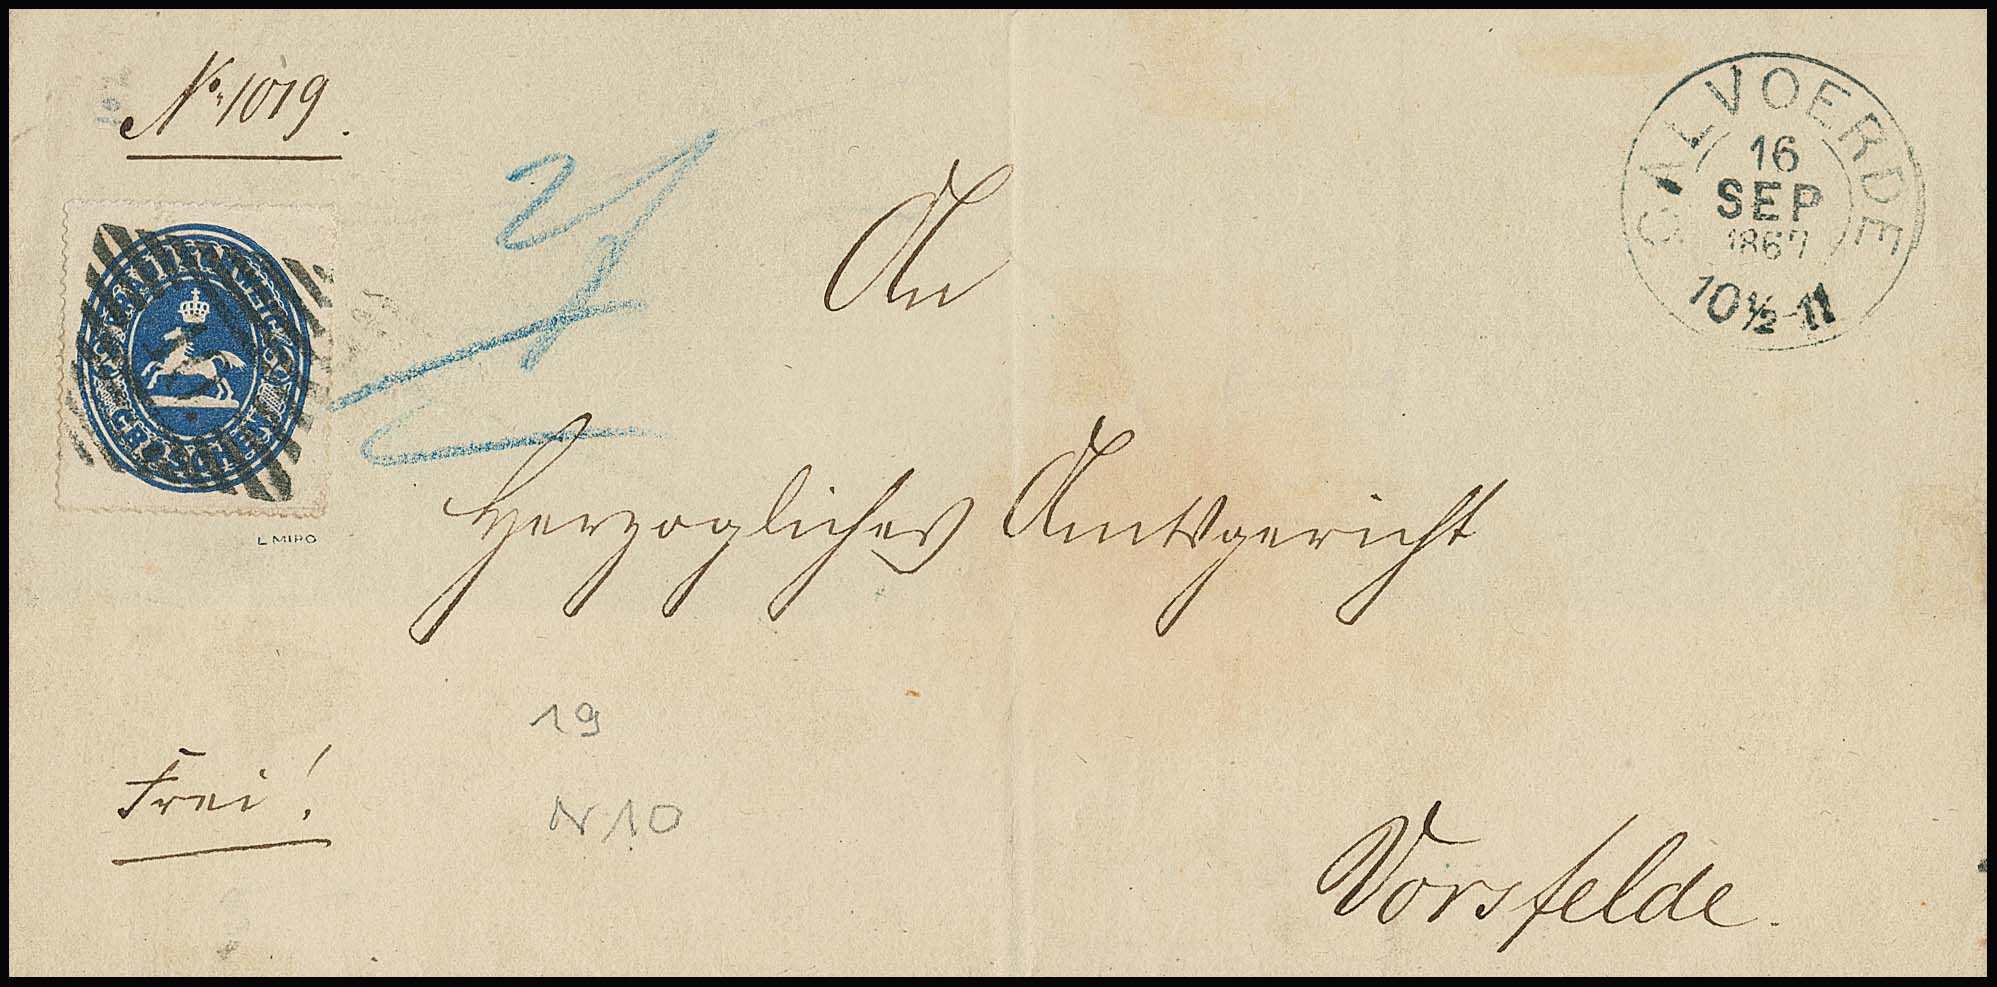 No. 1019.
CALVOERDE
16
SEP
1867
10½-11
BRAUNSCHWEIG
GROSCHEN
L MIRO
An
Herzogliches Amtsgericht
19
N 10
Frei!
Vorsfelde.